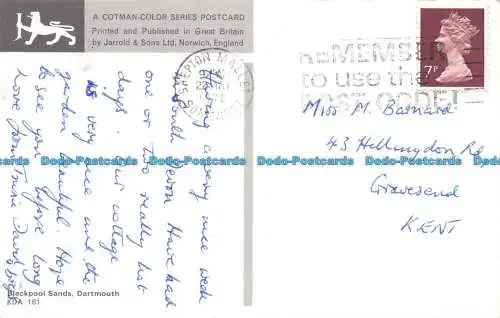 A COTMAN-COLOR SERIES POSTCARD
Printed and Published in Great Britain
by Jarrold & Sons Ltd, Norwich, England
SHEPTON MALLET
SOM
REMEMBER
to use the
POST CODE!
7P
Having a very nice week
in South Devon Have had
one or two really hot
days. Our cottage
is very nice and the
garden beautiful Hope
to see you before long
Love from David
Miss M. Barnard
43 Hillingdon Rd
Gravesend
KENT
Blackpool Sands, Dartmouth
KDA 161
Dodo-Postcards Dodo-Postcards Dodo-Postcards Dodo-Postcards
Dodo-Postcards Dodo-Postcards Dodo-Postcards Dodo-Postcards